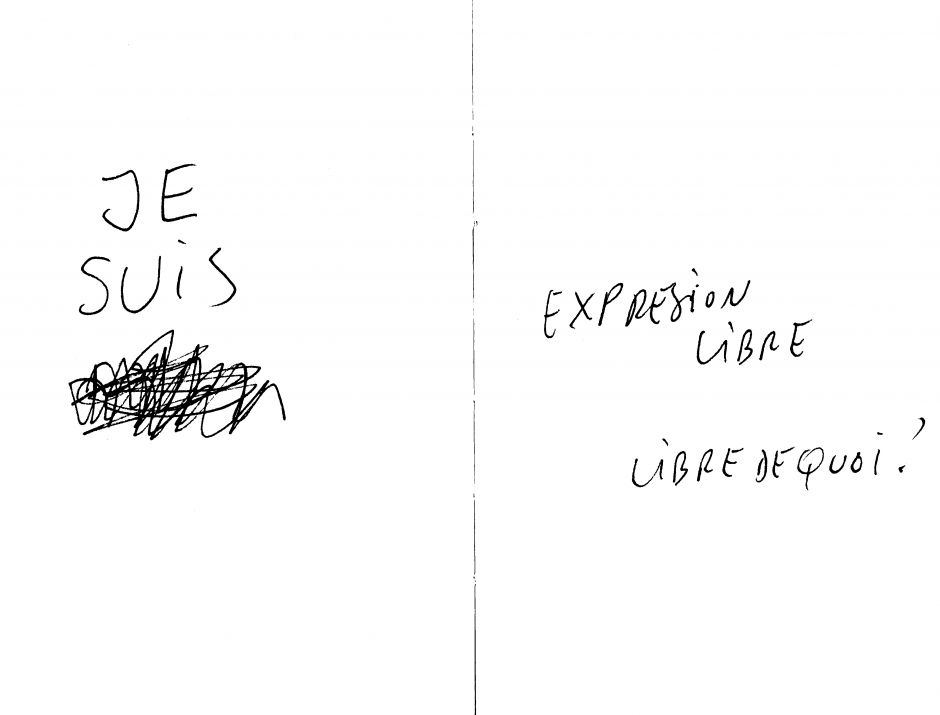 JE
SUiS
EXPRESiON
LiBRE
LiBRE DE QUOi ?